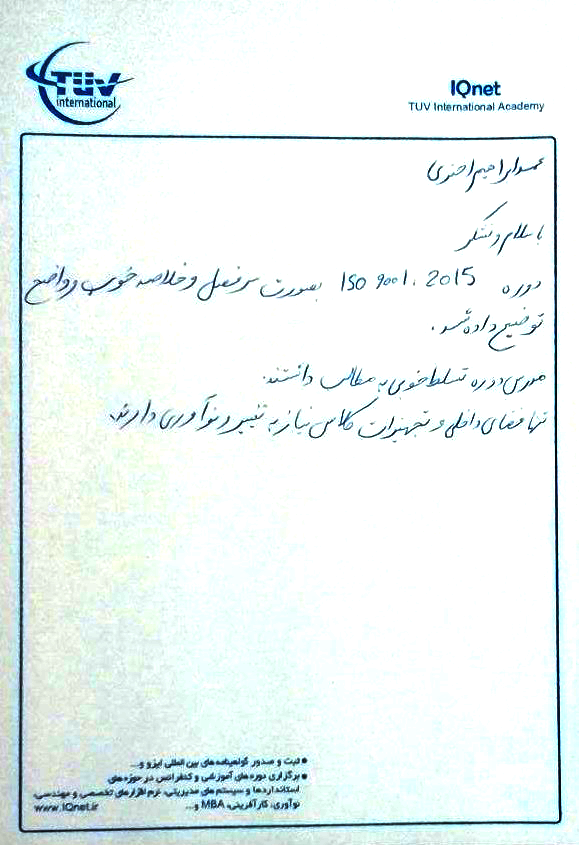 TÜV
international
IQnet
TUV International Academy
با سلام و تشکر
دوره ISO 9001 : 2015 بصورت سرفصل و خلاصه خوب و واضح
توضیح داده شد.
مدرس دوره تسلط خوبی به مطالب داشتند.
تنها فضای داخلی و تجهیزات کلاس نیاز به تغییر و نوآوری دارند.
• ثبت و صدور گواهینامه های بین المللی ایزو و...
• برگزاری دوره های آموزشی و کنفرانس در حوزه های
استانداردها و سیستم های مدیریتی، نرم افزارهای تخصصی و مهندسی،
نوآوری، کارآفرینی، MBA و...
www.IQnet.ir